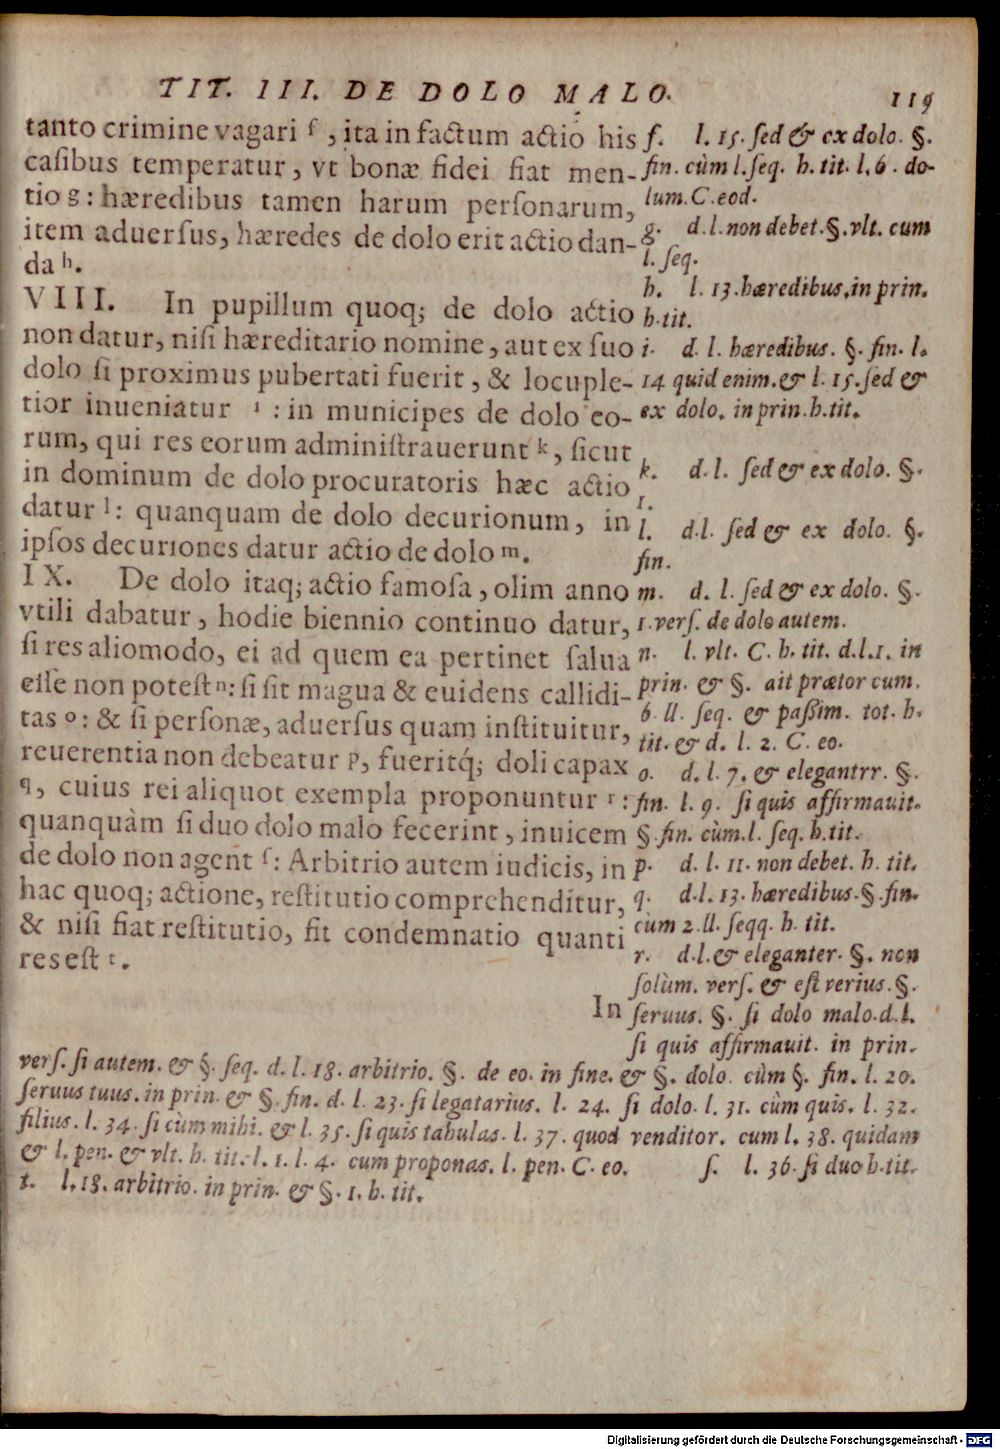 TIT. III. DE DOLO MALO. 119
tanto crimine vagari f, ita in factum actio his
caſibus temperatur, vt bonæ fidei fiat men-
tio g: hæredibus tamen harum perſonarum,
item aduerſus, hæredes de dolo erit actio dan-
da h.
VIII. In pupillum quoq; de dolo actio
non datur, niſi hæreditario nomine, aut ex ſuo
dolo ſi proximus pubertati fuerit, & locuple-
tior inueniatur i: in municipes de dolo eo-
rum, qui res eorum adminiſtrauerunt k, ſicut
in dominum de dolo procuratoris hæc actio
datur l: quanquam de dolo decurionum, in
ipſos decuriones datur actio de dolo m.
IX. De dolo itaq; actio famoſa, olim anno
vtili dabatur, hodie biennio continuo datur,
ſi res aliomodo, ei ad quem ea pertinet ſalua
eſſe non poteſt n: ſi ſit magua & euidens callidi-
tas o: & ſi perſonæ, aduerſus quam inſtituitur,
reuerentia non debeatur p, fueritq́; doli capax
q, cuius rei aliquot exempla proponuntur r:
quanquàm ſi duo dolo malo fecerint, inuicem
de dolo non agent ſ: Arbitrio autem iudicis, in
hac quoq; actione, reſtitutio comprehenditur,
& niſi fiat reſtitutio, fit condemnatio quanti
res eſt t.
In
f. l. 15. ſed & ex dolo. §.
fin. cùm l. ſeq. h. tit. l. 6. do-
lum. C. eod.
g. d. l. non debet. §. vlt. cum
l. ſeq.
h. l. 13. hæredibus, in prin.
h. tit.
i. d. l. hæredibus. §. fin. l.
14 quid enim. & l. 15. ſed &
ex dolo. in prin. h. tit.
k. d. l. ſed & ex dolo. §.
1.
l. d. l. ſed & ex dolo. §.
fin.
m. d. l. ſed & ex dolo. §.
1. verſ. de dolo autem.
n. l. vlt. C. h. tit. d. l. 1. in
prin. & §. ait prætor cum.
6. ll. ſeq. & paßim. tot. h.
tit. & d. l. 2. C. eo.
o. d. l. 7. & elegantrr. §.
fin. l. 9. ſi quis affirmauit.
§. fin. cùm. l. ſeq. h. tit.
p. d. l. 11. non debet. h. tit.
q. d. l. 13. hæredibus. §. fin.
cùm 2. ll. ſeqq. h. tit.
r. d. l. & eleganter. §. non
ſolùm. verſ. & eſt verius. §.
ſeruus. §. ſi dolo malo. d. l.
ſi quis affirmauit. in prin.
verſ. ſi autem. & §. ſeq. d. l. 18. arbitrio. §. de eo. in fine. & §. dolo. cùm §. fin. l. 20.
ſeruus tuus. in prin. & §. fin. d. l. 23. ſi legatarius. l. 24. ſi dolo. l. 31. cùm quis. l. 32.
filius. l. 34. ſi cùm mihi. & l. 35. ſi quis tabulas. l. 37. quod venditor. cum l. 38. quidam
& l. pen. & vlt. h. tit. l. 1. l. 4. cum proponas. l. pen. C. eo. ſ. l. 36. ſi duo h. tit.
t. l. 18. arbitrio. in prin. & §. 1. h. tit.
Digitalisierung gefördert durch die Deutsche Forschungsgemeinschaft - DFG